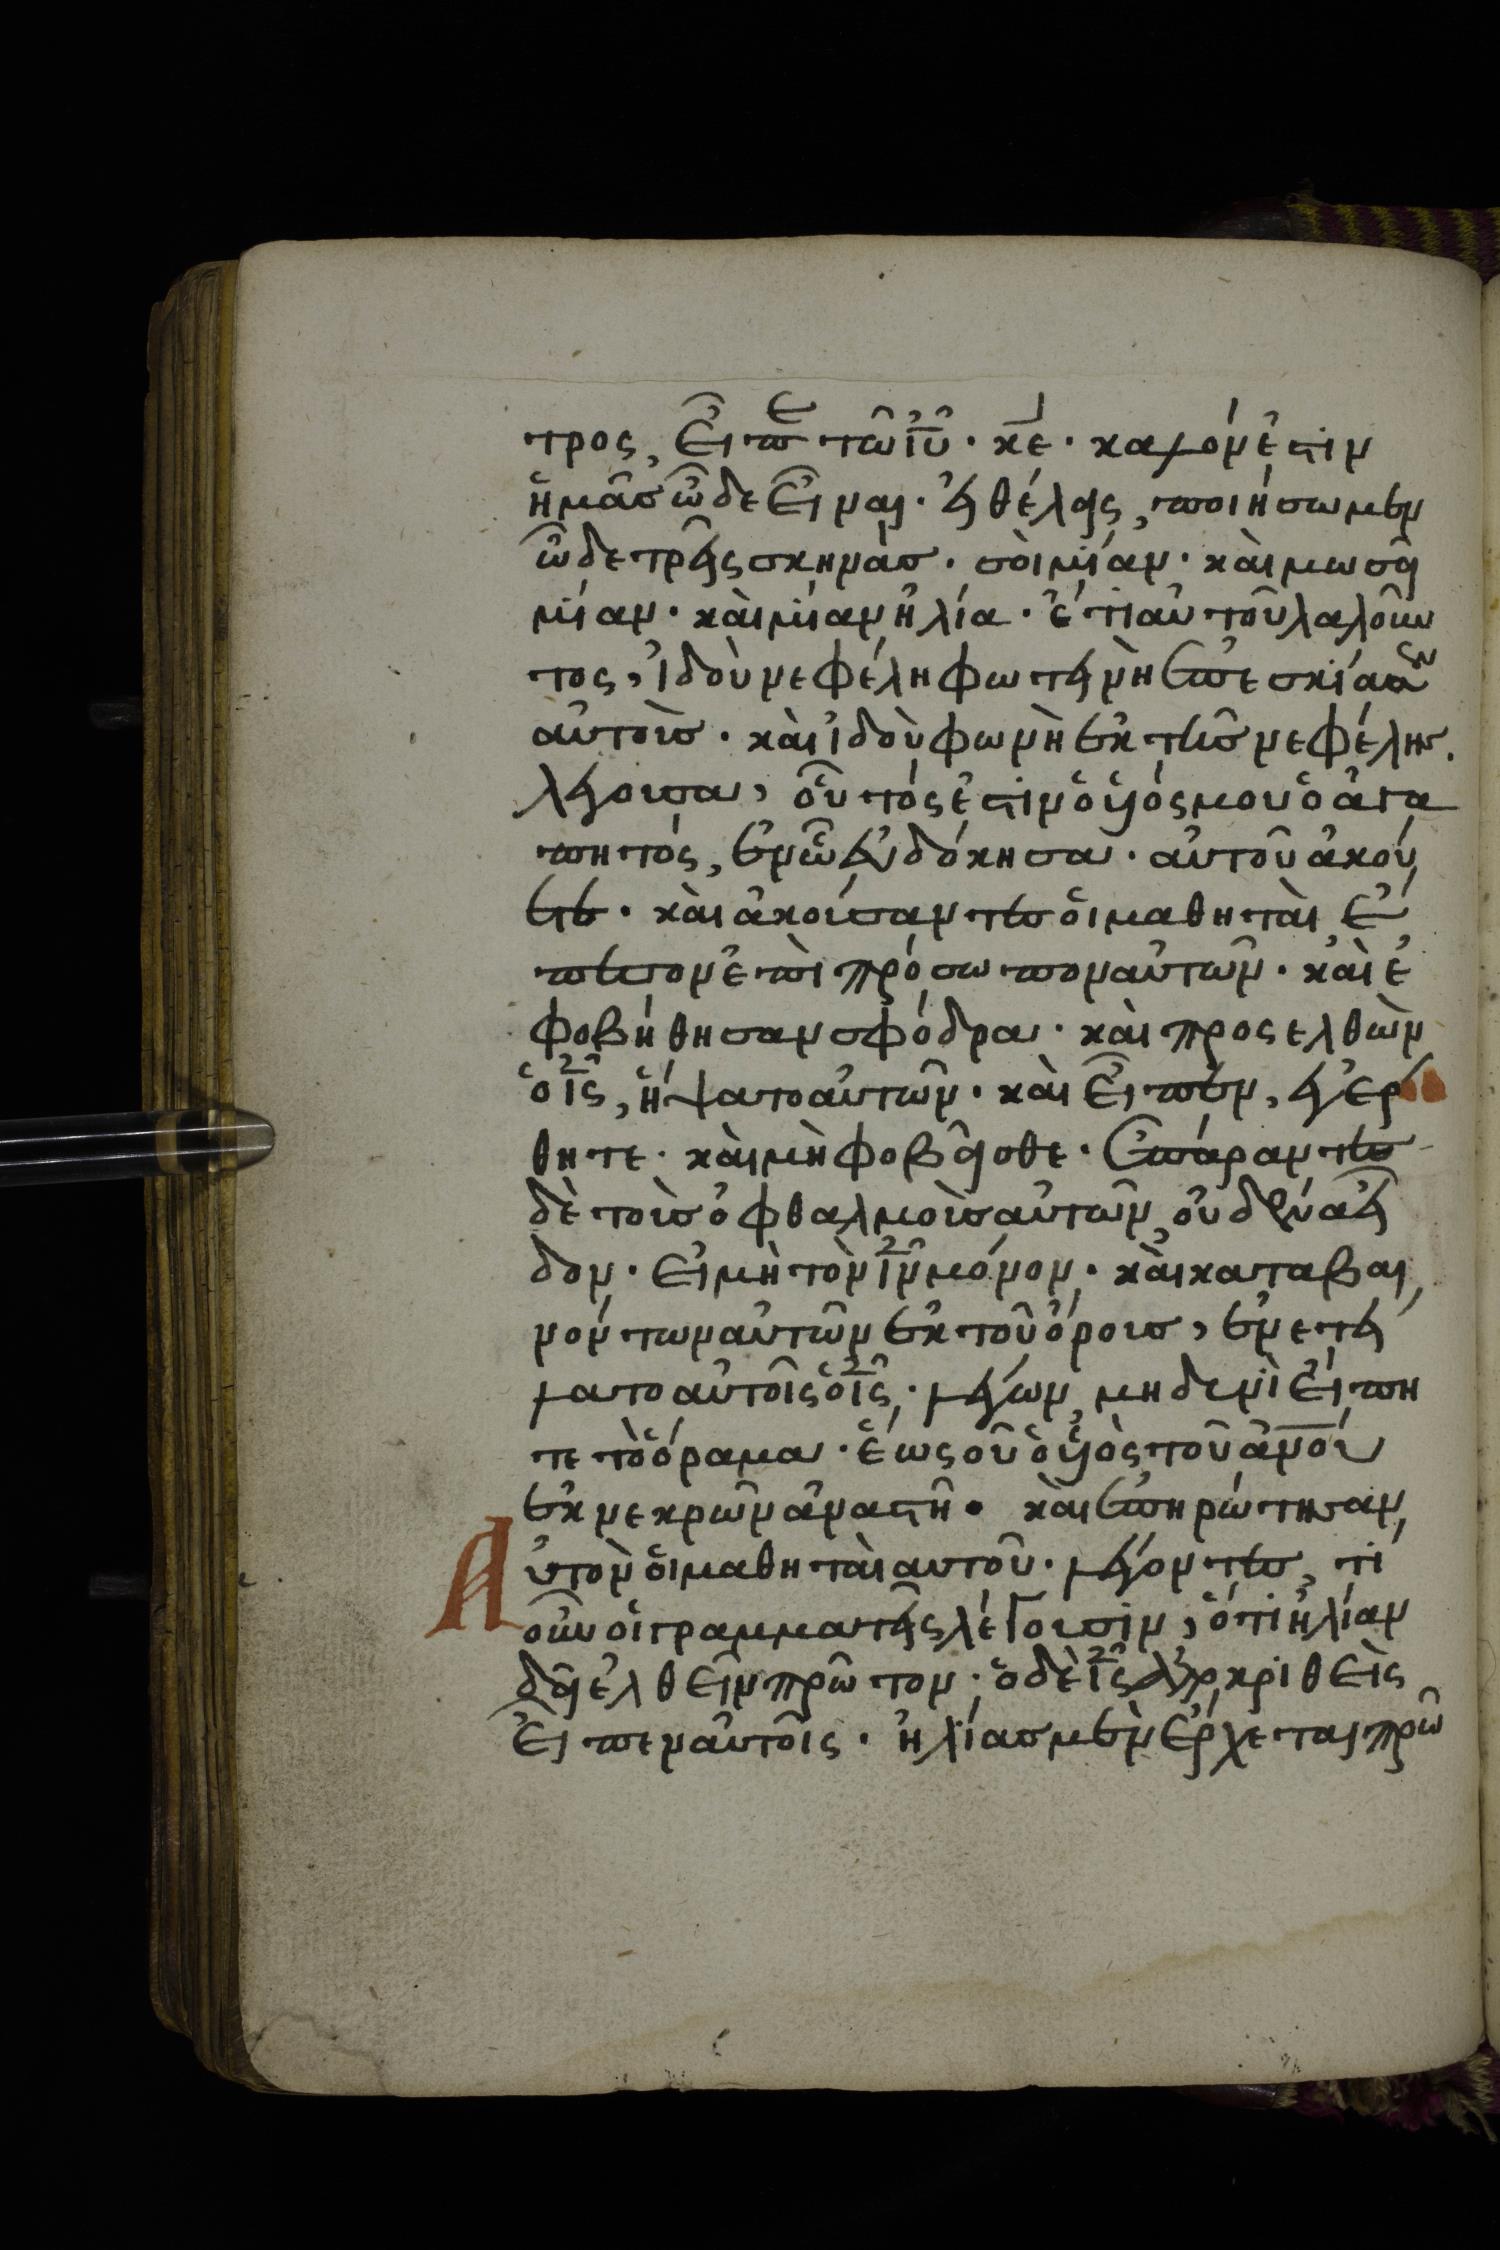 τρος, εἶπε τῶ ἰῦ· κε· καλόν ἐστιν
ἡμᾶσ ὧδε εἶναι· εἰ θέλεις, ποιήσωμεν
ὧδε τρεῖς σκηνὰσ· σὸι μίαν· κὰι μωσῆ
μίαν· κὰι μίαν ἡλία· ἔτι αὐτοῦ λαλοῦν
τος, ἰδοὺ νεφέλη φωτεινὴ ἐπεσκίασεν
αὐτοὺσ· κὰι ἰδοὺ φωνὴ ἐκ τῆσ νεφέλησ.
λέγουσα, οὗτός ἐστιν ὁ υἱός μου ὁ ἀγα
πητός, ἐν ὧ εὐδόκησα· αὐτοῦ ἀκού
ετε· κὰι ἀκούσαντεσ ὁι μαθητὰι ἔ
πεσον ἐπὶ πρόσωπον αὐτῶν· κὰι ἐ
φοβήθησαν σφόδρα· κὰι προσελθὼν
ὁ ἰς, ἥψατο αὐτῶν· κὰι εἶπεν, ἐγέρ
θητε· κὰι μὴ φοβεῖσθε· ἐπάραντεσ
δὲ τοὺσ ὀφθαλμοὺσ αὐτῶν οὐδένα εἶ
δον· εἰ μὴ τὸν ἰν μόνον· κὰι καταβαι
νόντων αὐτῶν ἐκ τοῦ ὄρουσ, ἐνετεί
λατο αὐτοῖς ὁ ἰς· λέγων μηδενὶ εἴπη
τε τὸ ὅραμα· ἕως οὗ ὁ υἱὸς τοῦ ἀνου
ἐκ νεκρῶν ἀναστῆ· κὰι ἐπηρώτησαν
Αὐτὸν ὁι μαθητὰι αυτοῦ· λέγοντεσ, τί
οὖν οἱ γραμματεῖς λέγουσιν, ὅτι ἠλίαν
δεῖ ἐλθεῖν πρῶτον· ὁ δὲ ἰς ἀποκριθεὶς
εἶπεν αὐτοῖς· ἠλίασ μὲν ἔρχεται πρῶ